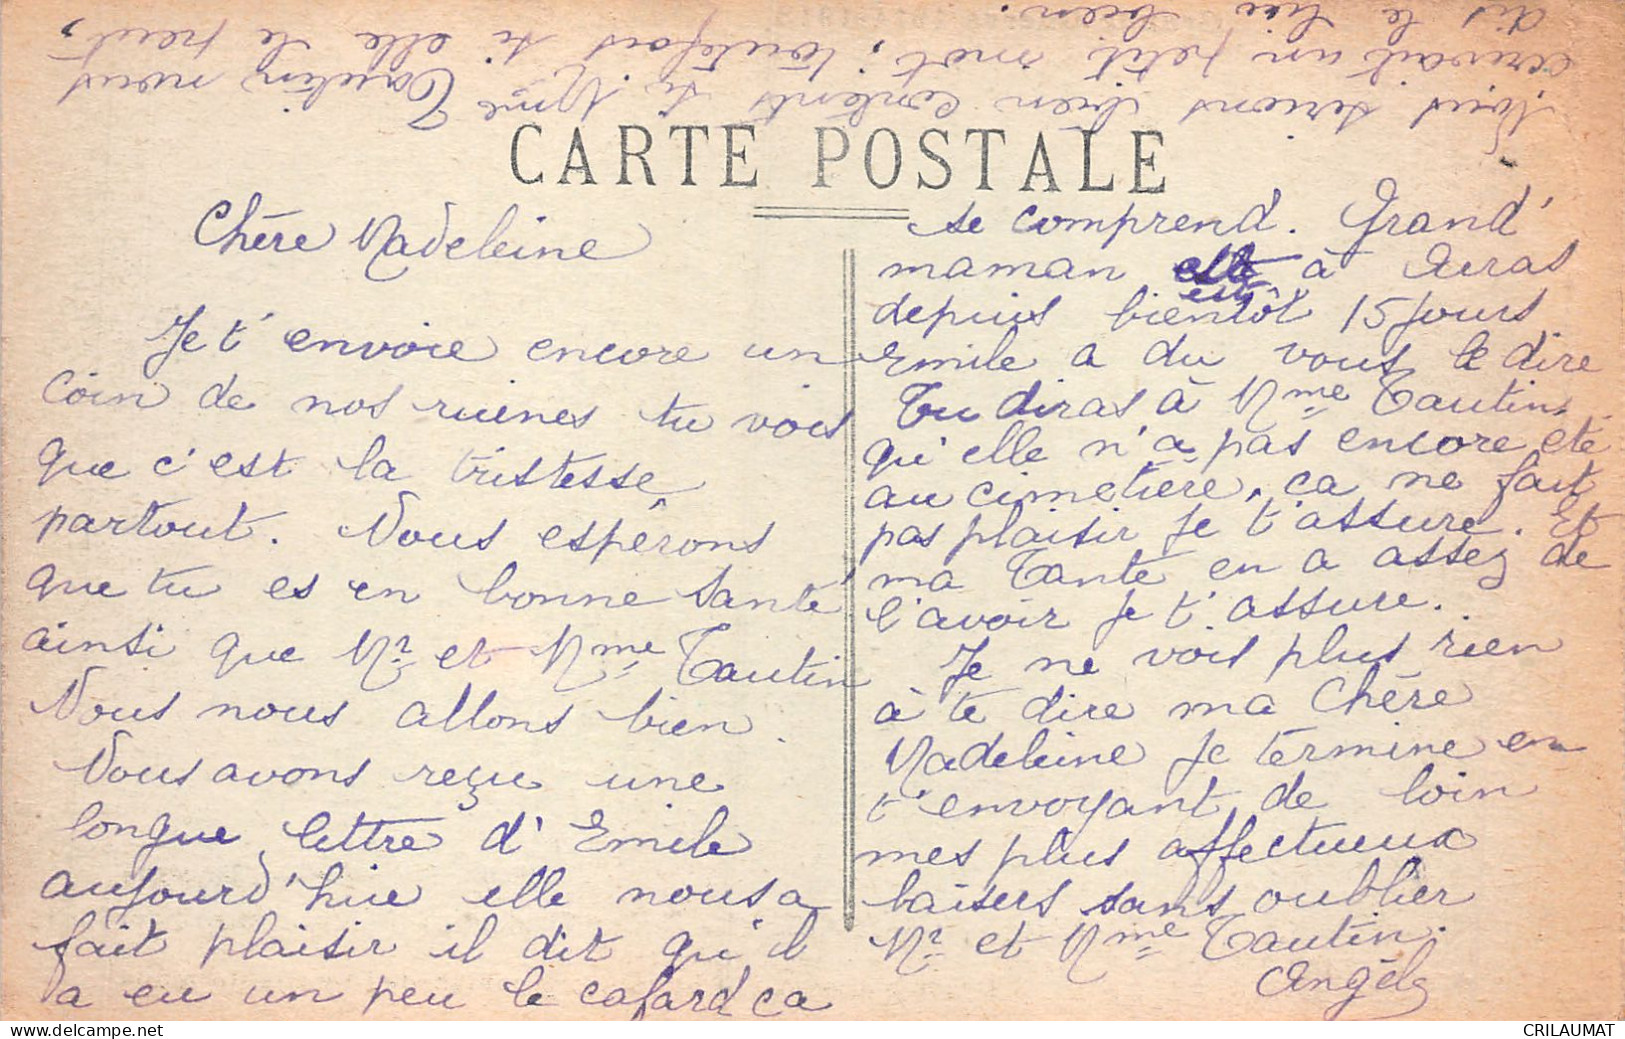 CARTE POSTALE
Chère Madeleine
Je t'envoie encore un
coin de nos ruines tu vois
que c'est la tristesse
partout. Nous espérons
que tu es en bonne santé
ainsi que Mr et Mme Tautin
Nous nous allons bien.
Nous avons reçu une
longue lettre d'Emile
aujourd'hui elle nous a
fait plaisir il dit qu'il
a eu un peu le cafard ca
se comprend. Grand'
maman est à Arras
depuis bientôt 15 jours
Emile a du vous le dire
Tu diras à Mme Tautin
qu'elle n'a pas encore eté
au cimetière, ca ne fait
pas plaisir je t'assure. Et
ma Tante en a assez de
l'avoir je t'assure.
Je ne vois plus rien
à te dire ma Chère
Madeleine je termine en
t'envoyant de loin
mes plus affectueux
baisers sans oublier
Mr et Mme Tautin.
Angèle
Nous serions bien contents si Mme Tautin nous
écrivait un petit mot, toutefois si elle le peut,
dis le lui bien.
CRILAUMAT